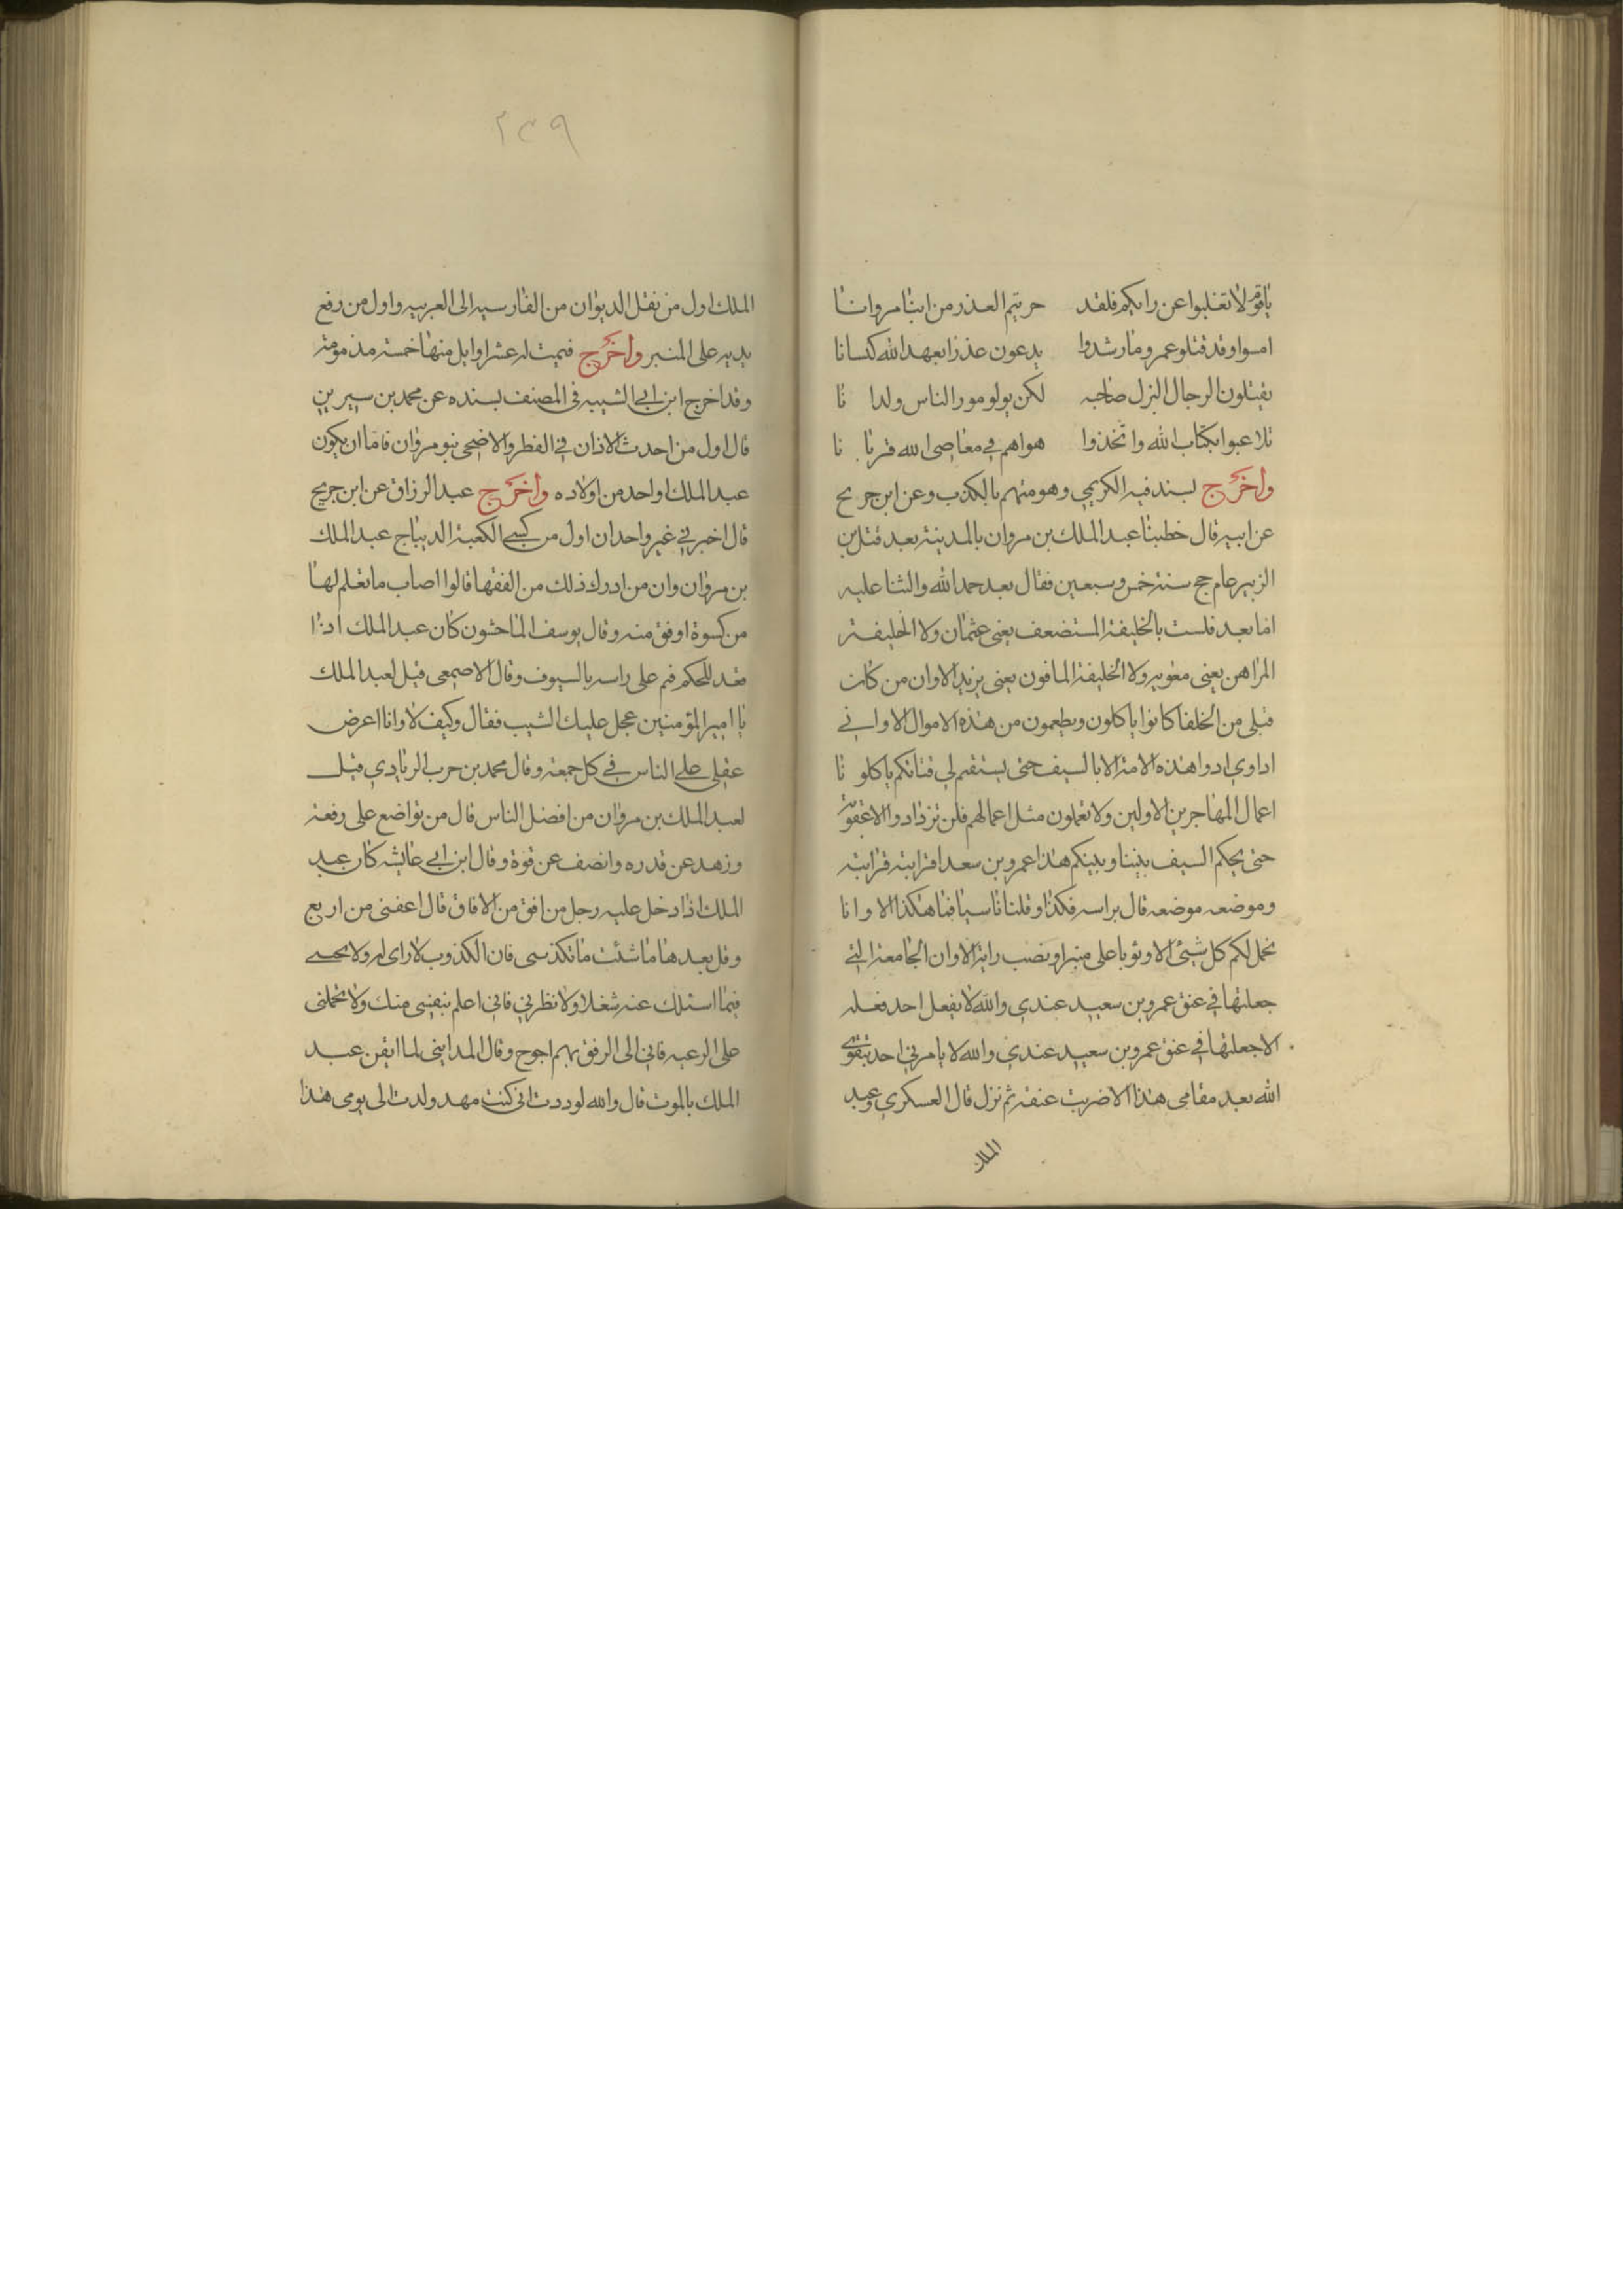 ياقوم لا تغلبوا عن رايكم فلقد حربتم العذر من ابنا مروانا
امسوا وقد قتلو عمرو ومارشدوا يدعون عذرا بعهد الله كسانا
يقتلون الرجال البزل صاحبه لكن يولو مور الناس ولدا نا
تلاعبوا بكتاب الله واتخذوا هواهم في معاصى الله قربا نا
واخرج بسند فيه الكريمي وهو متهم بالكذب وعن ابن جريح
عن ابيه قال خطبنا عبد الملك بن مروان بالمدينة بعد قتل بن
الزبير عام حج سنة خمس وسبعين فقال بعد حمد الله والثنا عليه
اما بعد فلست بالخليفة المستضعف يعني عثمان ولا الخليفة
المراهن يعني معويه ولا الخليفة المافون يعنى يزيد الا وان من كان
قبلى من الخلفا كانوا ياكلون ويطعمون من هذه الاموال الا واني
اداوي ادوا هذه الامة الا بالسيف حتى يستقيم لي قناتكم ياكلو نا
اعمال المهاجرين الاولين ولا تعملون مثل اعمالهم فلن تزدادوا الاعقوبة
حتى يحكم السيف بيننا وبينكم هذا عمرو بن سعد اقرابته قرابته
وموضعه موضعه قال براسه فكذا وقلنا ناسيافنا هكذا الا وانا
نحمل لكم كل شيئ الا وثوبا على منبر او نصب راية الا وان الجامعة التي
جعلتها في عنق عمرو بن سعيد عندي والله لا يفعل احد فعله
الاجعلتها في عنق عمرو بن سعيد عندي والله لا يامرني احد بتقوى
الله بعد مقامى هذا الا ضربت عنقه ثم نزل قال العسكري وعبد
الملك
٢٣٩
الملك اول من نقل الديوان من الفارسيه الى العربيه واول من رفع
يديه على المنبر واخرج فيمت له عشر اوايل منها خمسة مذمومة
وقد اخرج ابن ابي الشيبه فى المصنف بسنده عن محمد بن سيرين
قال اول من احدث الاذان في الفطر والاضحى بنو مروان فاما ان يكون
عبد الملك او احد من اولاده واخرج عبد الرزاق عن ابن جريح
قال اخبرني غير واحد ان اول من كسي الكعبة الديباج عبد الملك
بن مروان وان من ادرك ذلك من الفقها قالوا اصاب ما نعلم لها
من كسوة اوفق منه وقال يوسف الماحثون كان عبد الملك اذا
مقعد للحكم قيم على راسه بالسيوف وقال الاصمعى قيل لعبد الملك
يا امير المؤمنين عجل عليك الشيب فقال وكيف لا وانا اعرض
عقلى على الناس في كل جمعة وقال محمد بن حرب الزيادي قيل
لعبد الملك بن مروان من افضل الناس قال من تواضع على رفعة
وزهد عن قدره وانصف عن قوة وقال ابن ابي عايشه كان عبد
الملك اذا دخل عليه رجل من افق من الافاق قال اعفنى من اربع
وقل بعدها ما شئت ما تكذبنى فان الكذوب لا راى له ولا تجبنى
فيما اسئلك عنه شغلا ولا تطرني فاني اعلم بنفسى منك ولا تحملنى
على الرعيه فاني الى الرفق بهم احوج وقال المدايني لما ايقن عبد
الملك بالموت قال والله لوددت انى كنت مهد ولدت الى يومى هذا